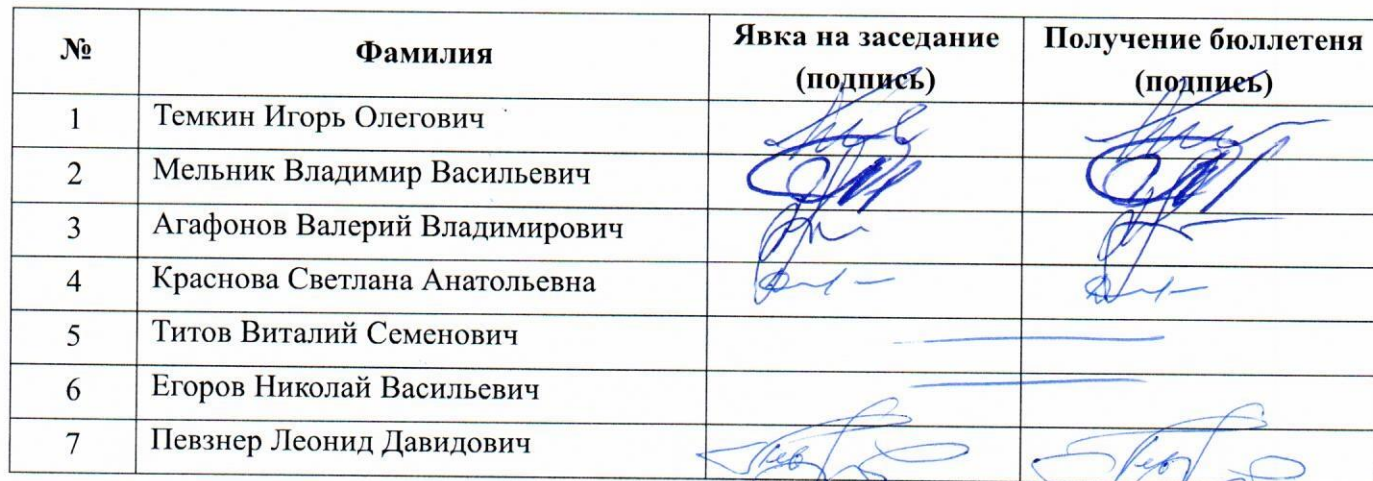 № Фамилия Явка на заседание (подпись) Получение бюллетеня (подпись)
1 Темкин Игорь Олегович
2 Мельник Владимир Васильевич
3 Агафонов Валерий Владимирович
4 Краснова Светлана Анатольевна
5 Титов Виталий Семенович
6 Егоров Николай Васильевич
7 Певзнер Леонид Давидович